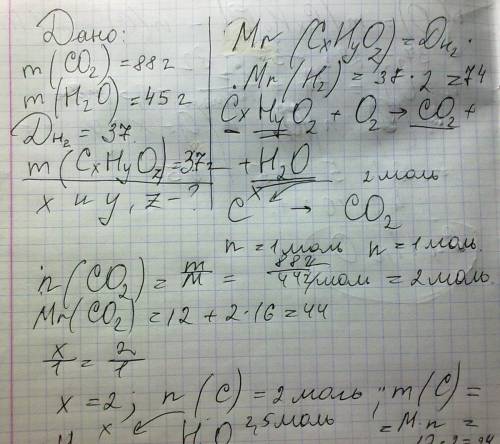 Дано:
m(CO₂) = 88 г
m(H₂O) = 45 г
D H₂ = 37
m(CxHyOz) = 37 г
x и y, z - ?
Mr(CxHyOz) = D H₂ ·
· Mr(H₂) = 37 · 2 = 74
CxHyOz + O₂ → CO₂ +
+ H₂O
x 2 моль
C → CO₂
n = 1 моль n = 1 моль
n(CO₂) = m/M = 88 г / 44 г/моль = 2 моль
Mr(CO₂) = 12 + 2 · 16 = 44
x/1 = 2/1
x = 2; n(C) = 2 моль; m(C) =
x 2,5 моль = M · n =
H₂O